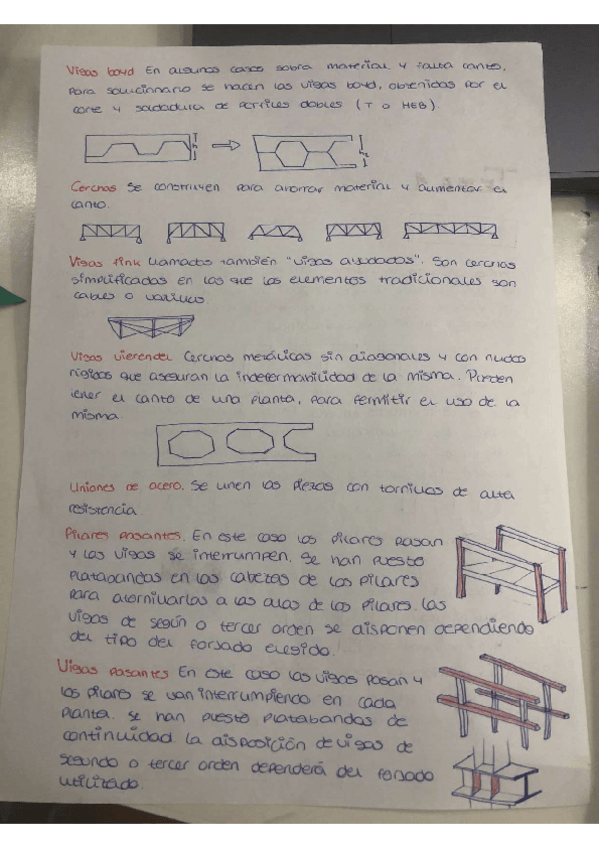 Vigas boyd En algunos casos sobra material y falta canto,
para solucionarlo se hacen las vigas boyd, obtenidas por el
corte y soldadura de perfiles dobles (T o HEB).
h
Cerchas Se construyen para ahorrar material y aumentar el
canto.
Vigas fink Llamados también "vigas ayudadas". Son cerchas
simplificadas en las que los elementos tradicionales son
cables o varillas
Vigas vierendel Cerchas metálicas sin diagonales y con nudos
rígidos que aseguran la indeformabilidad de la misma. Pueden
tener el canto de una planta, para permitir el uso de la
misma.
Uniones de acero. Se unen las piezas con tornillos de alta
resistencia
Pilares pasantes. En este caso los pilares pasan
y las vigas se interrumpen. Se han puesto
platabandas en las cabezas de los pilares
para atornillarlas a las alas de los pilares. Las
vigas de según o tercer orden se disponen dependiendo
del tipo del forjado elegido.
Vigas pasantes En este caso las vigas pasan y
los pilares se van interrumpiendo en cada
planta. Se han puesto platabandas de
continuidad. La disposición de vigas de
segundo o tercer orden dependerá del forjado
utilizado.